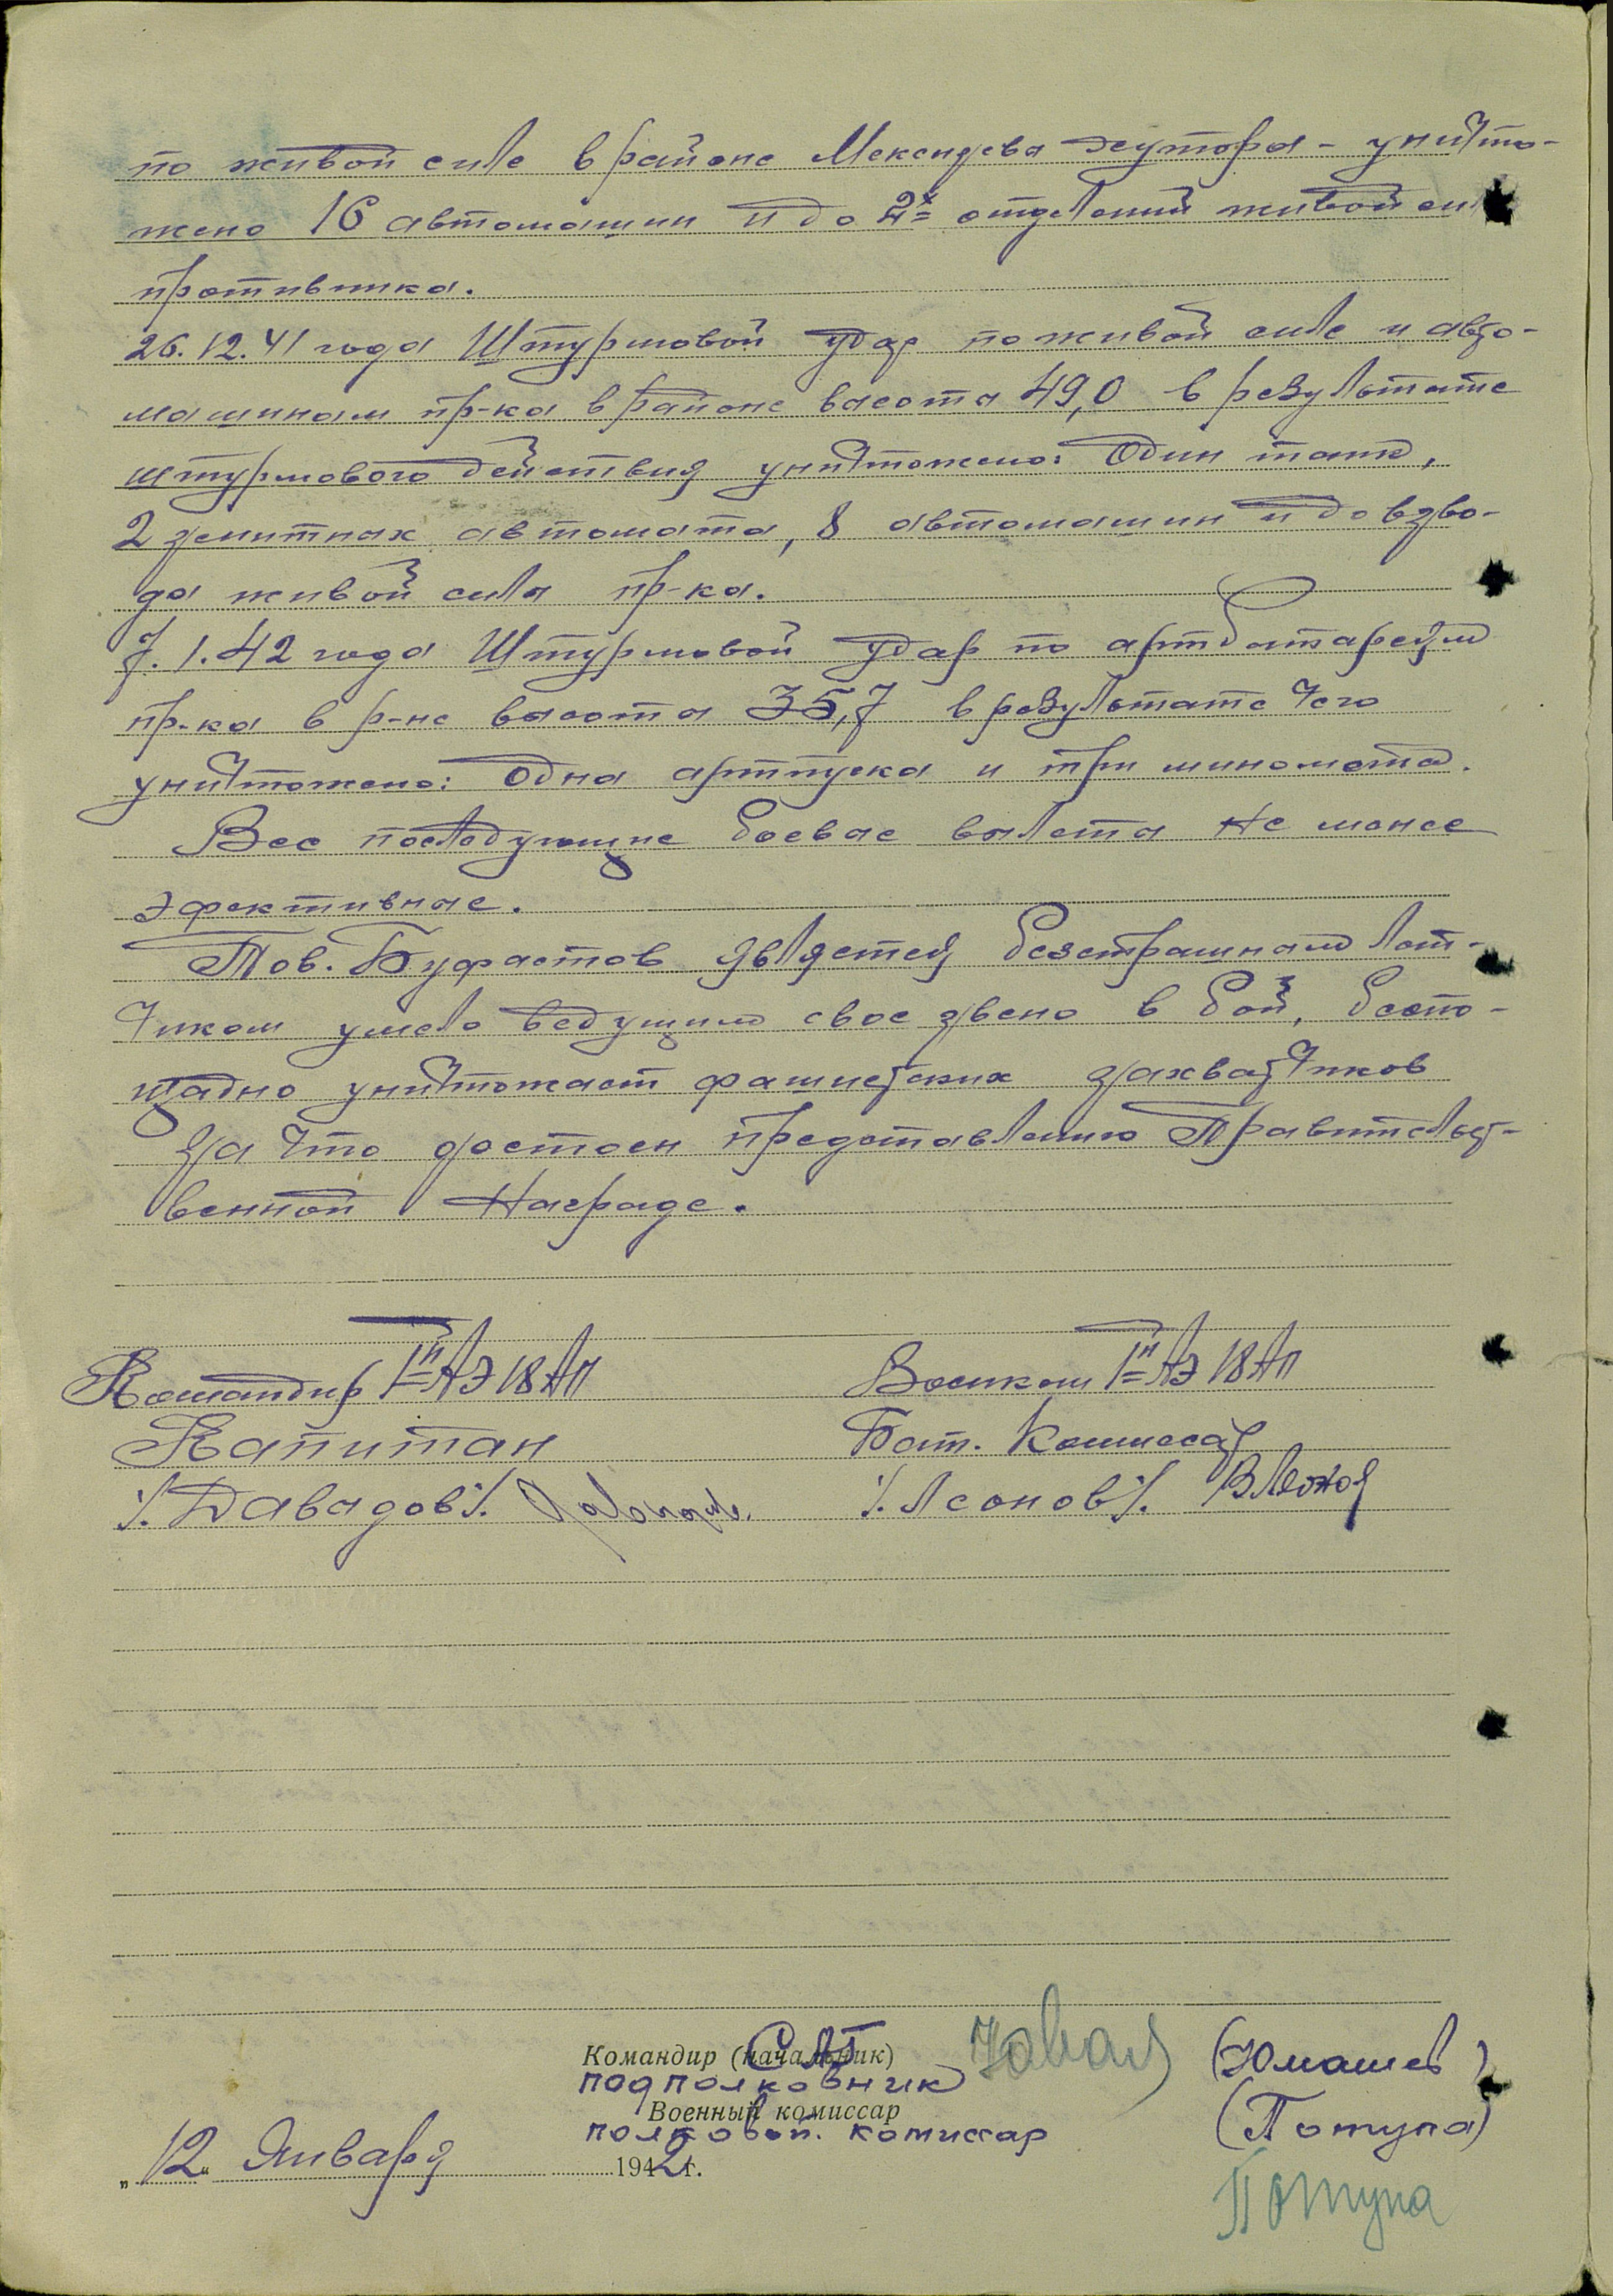 по живой силе в районе Мекензева хутора - уничто-
жено 16 автомашин и до 2х отделений живой силы
противника.
26.12.41 года Штурмовой удар по живой силе и авто-
машинам пр-ка в районе высоты 49,0 в результате
штурмового действия уничтожено: Один танк,
2 зенитных автомата, 8 автомашин и до взво-
да живой силы пр-ка.
7.1.42 года Штурмовой удар по артбатареям
пр-ка в р-не высоты 35,7 в результате чего
уничтожено: Одна артпушка и три миномета.
Все последующие боевые вылеты не менее
эфективные.
Тов. Буфастов является безстрашным лет-
чиком умело ведущим свое звено в бой, беспо-
щадно уничтожает фашистских захватчиков
За что достоен представлению Правительст-
венной Награде.
Командир 1й АЭ 18 АП Военком 1й АЭ 18 АП
Капитан Бат. Комиссар
/. Давыдов /. /. Леонов /. ВЛеонов
Командир (начальник) (Юмашев)
подполковник
Военный комиссар (Потупа)
полковой. комиссар
„12“ Января 1942 г.
Потупа